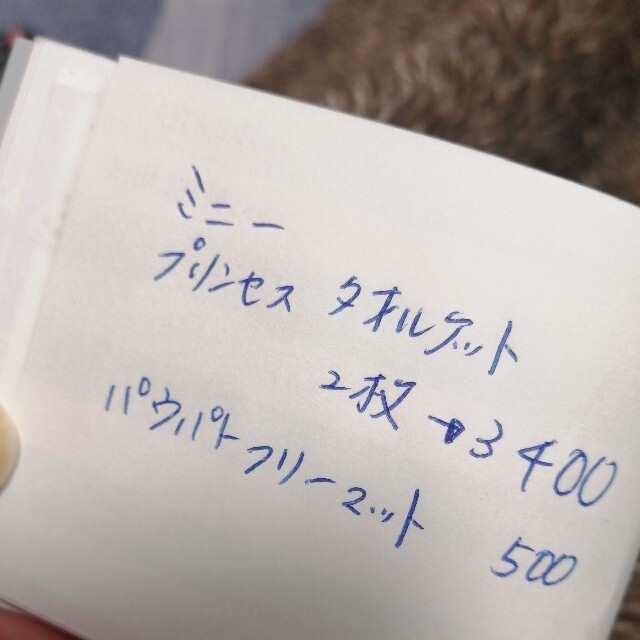 ミニー
プリンセス タオルケット
2枚→3400
パウパト フリーマット 500